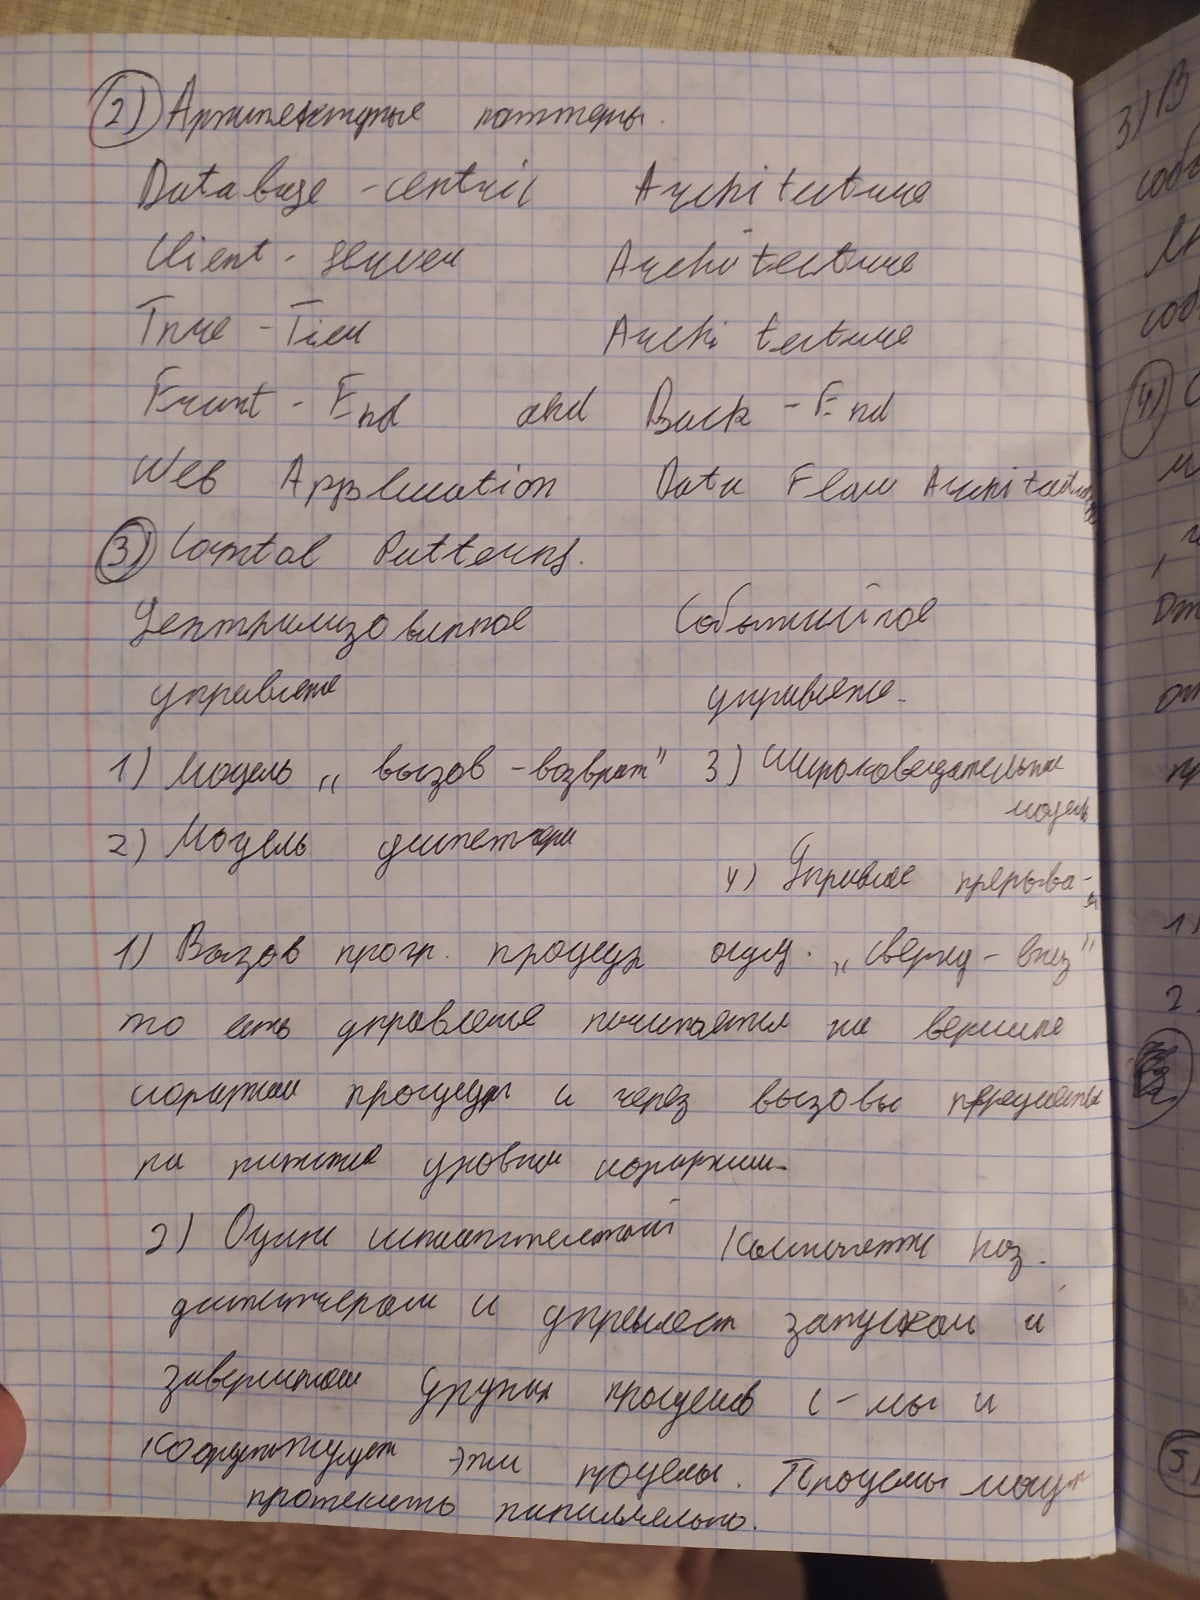 2) Архитектурные паттерны.
Database-centric Architecture
Client-server Architecture
Three-Tier Architecture
Front-End and Back-End
Web Application Data Flow Architecture
3) Control Patterns.
Централизованное Событийное
управление управление.
1) Модель „вызов-возврат" 3) Широковещательная
модель
2) Модель диспетчера
4) Управление прерыва-
1) Вызов прогр. процедур осущ. „сверху-вниз"
то есть управление начинается на вершине
иерархии процедур и через вызовы передается
на нижние уровни иерархии.
2) Один исполнительный компонент наз.
диспетчером и управляет запуском и
завершением других процессов с-мы и
координирует эти процессы. Процессы могут
протекать параллельно.
3) В
4)
2.
5)